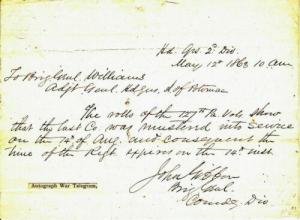 Hd. Qrs. 2d Div.
May 12th 1863 10 am
To Brig Genl. Williams
Adjt Genl. Hdqrs. A. of Potomac
The rolls of the 127th Pa Vols show
that the last Co. was mustered into service
on the 14th of Aug. and consequent the
time of the Regt expires on the 14th inst.
John Gibbon
Brig Genl.
Comdg Div
Autograph War Telegram.